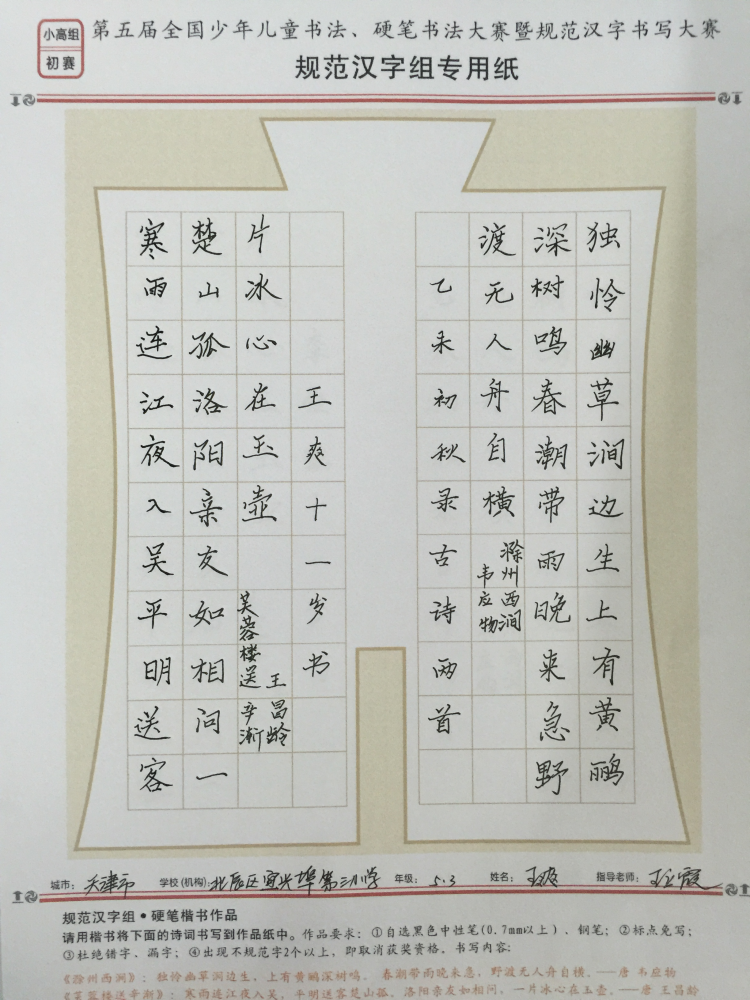 小高组
初赛
第五届全国少年儿童书法、硬笔书法大赛暨规范汉字书写大赛
规范汉字组专用纸
独怜幽草涧边生上有黄鹂
深树鸣春潮带雨晚来急野
渡无人舟自横
滁州西涧
韦应物
乙未初秋录古诗两首
寒雨连江夜入吴平明送客
楚山孤洛阳亲友如相问一
片冰心在玉壶
芙蓉楼送辛渐
王昌龄
王爽十一岁书
城市：天津市 学校(机构)：北辰区宜兴埠第三小学 年级：5.3 姓名：王爽 指导老师：王立霞
规范汉字组·硬笔楷书作品
请用楷书将下面的诗词书写到作品纸中。作品要求：①自选黑色中性笔(0.7mm以上)、钢笔；②标点免写；
③杜绝错字、漏字；④出现不规范字2个以上，即取消获奖资格。书写内容：
《滁州西涧》：独怜幽草涧边生，上有黄鹂深树鸣。春潮带雨晚来急，野渡无人舟自横。——唐 韦应物
《芙蓉楼送辛渐》：寒雨连江夜入吴，平明送客楚山孤。洛阳亲友如相问，一片冰心在玉壶。——唐 王昌龄